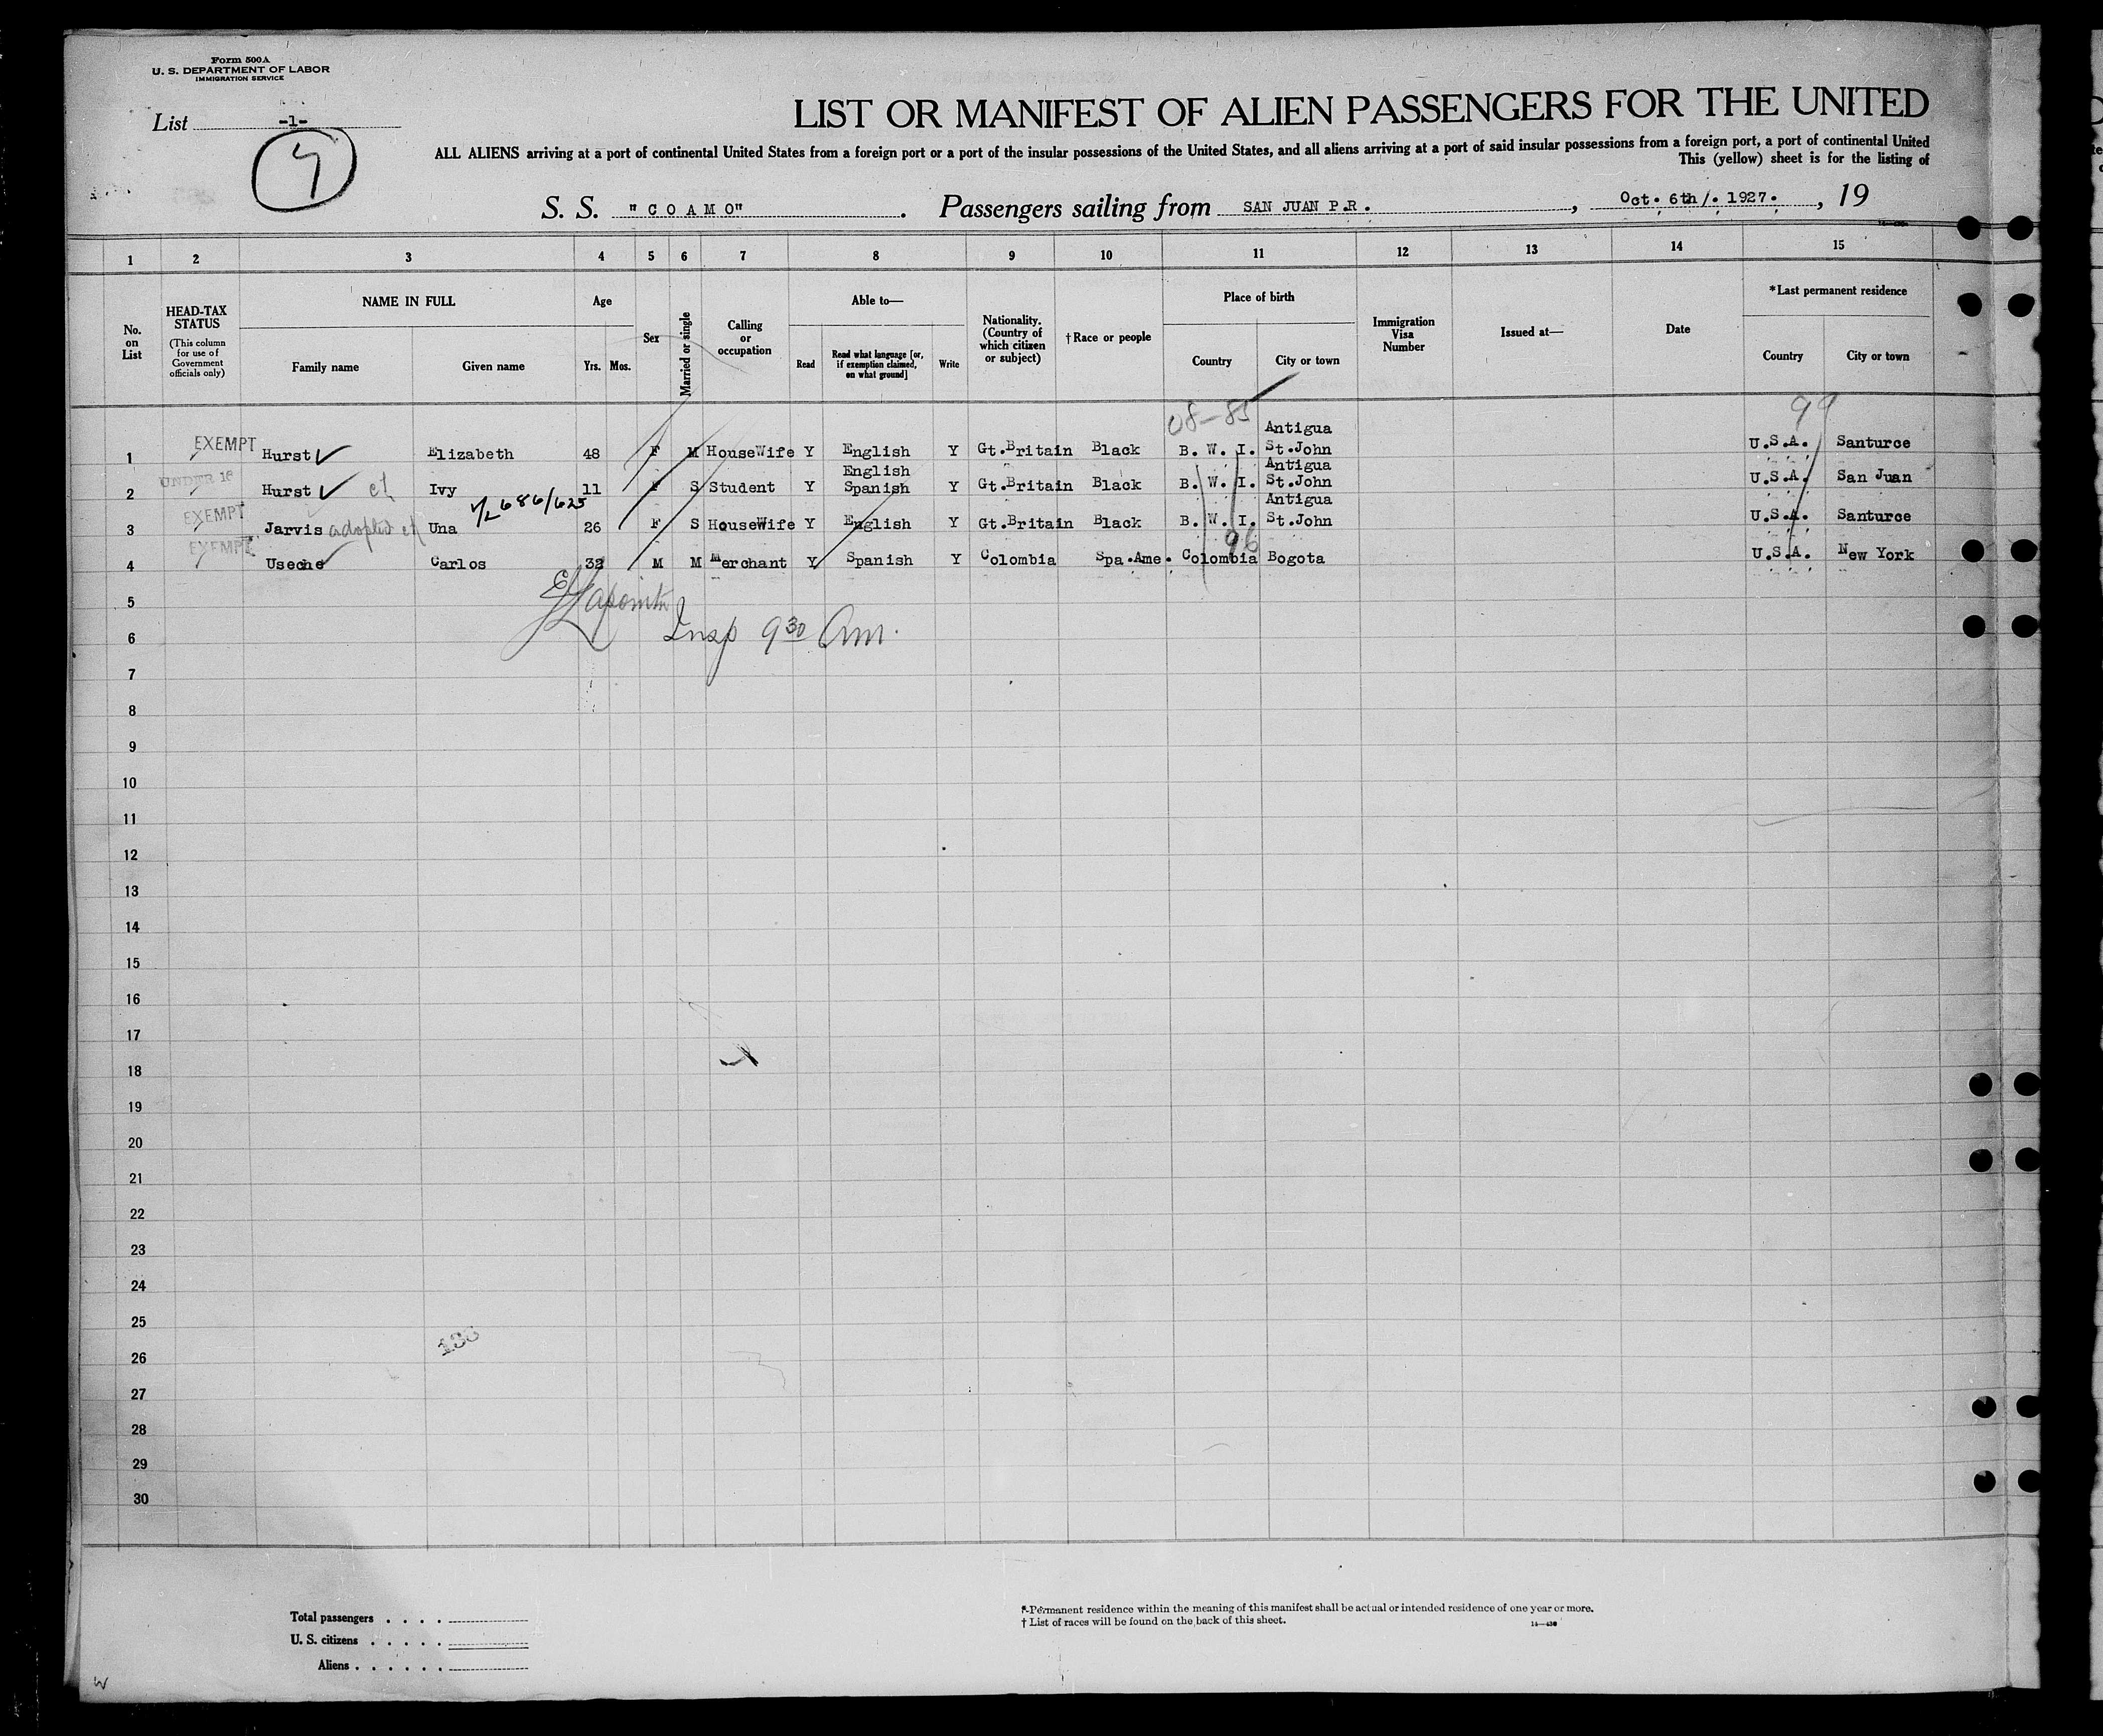 Form 500A
U. S. DEPARTMENT OF LABOR
IMMIGRATION SERVICE
List -1-
LIST OR MANIFEST OF ALIEN PASSENGERS FOR THE UNITED
ALL ALIENS arriving at a port of continental United States from a foreign port or a port of the insular possessions of the United States, and all aliens arriving at a port of said insular possessions from a foreign port, a port of continental United
This (yellow) sheet is for the listing of
S. S. "COAMO". Passengers sailing from SAN JUAN P.R., Oct. 6th/. 1927., 19
1 2 3 4 5 6 7 8 9 10 11 12 13 14 15
No. on List
HEAD-TAX STATUS
(This column for use of Government officials only)
NAME IN FULL
Family name Given name
Age
Yrs. Mos.
Sex
Married or single
Calling or occupation
Able to—
Read
Read what language [or, if exemption claimed, on what ground]
Write
Nationality. (Country of which citizen or subject)
†Race or people
Place of birth
Country City or town
Immigration Visa Number
Issued at—
Date
*Last permanent residence
Country City or town
08-85 99
Antigua
1 EXEMPT Hurst Elizabeth 48 F M HouseWife Y English Y Gt.Britain Black B. W. I. St.John U.S.A. Santurce
English Antigua
2 UNDER 16 Hurst Ivy 11 F S Student Y Spanish Y Gt.Britain Black B. W. I. St.John U.S.A. San Juan
686/625 Antigua
3 EXEMPT Jarvis adopted Una 26 F S HouseWife Y English Y Gt.Britain Black B. W. I. St.John U.S.A. Santurce
96
4 EXEMPT Useche Carlos 32 M M Merchant Y Spanish Y Colombia Spa.Ame. Colombia Bogota U.S.A. New York
5
Insp 9 30 Am.
6
7
8
9
10
11
12
13
14
15
16
17
18
19
20
21
22
23
24
25
26
27
28
29
30
Total passengers . . . .
U. S. citizens . . . . .
Aliens . . . . . .
*Permanent residence within the meaning of this manifest shall be actual or intended residence of one year or more.
† List of races will be found on the back of this sheet.